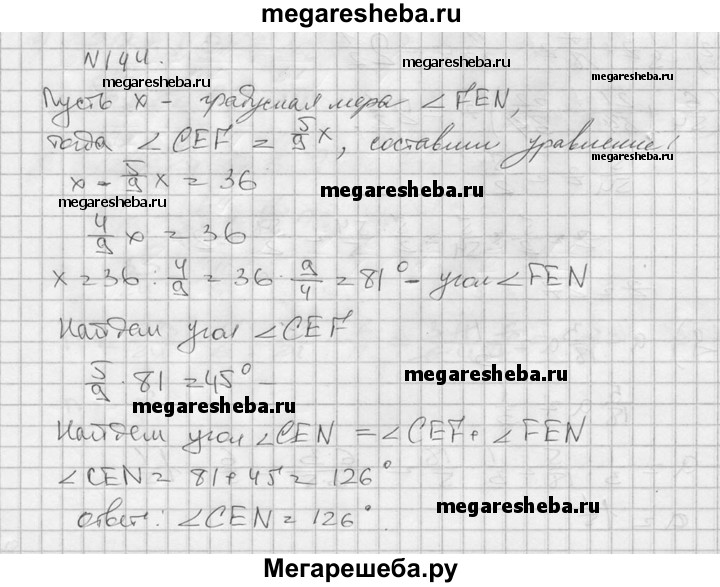 megaresheba.ru
N144.
megaresheba.ru
megaresheba.ru
Пусть x - градусная мера ∠FEN,
тогда ∠CEF = 5/9 x, составим уравнение:
megaresheba.ru
x - 5/9 x = 36
megaresheba.ru
megaresheba.ru
4/9 x = 36
x = 36 : 4/9 = 36 · 9/4 = 81° - угол ∠FEN
Найдем угол ∠CEF
5/9 · 81 = 45° -
megaresheba.ru
megaresheba.ru
Найдем угол ∠CEN = ∠CEF + ∠FEN
∠CEN = 81 + 45 = 126°
megaresheba.ru
ответ: ∠CEN = 126°.
Мегарешеба.ру